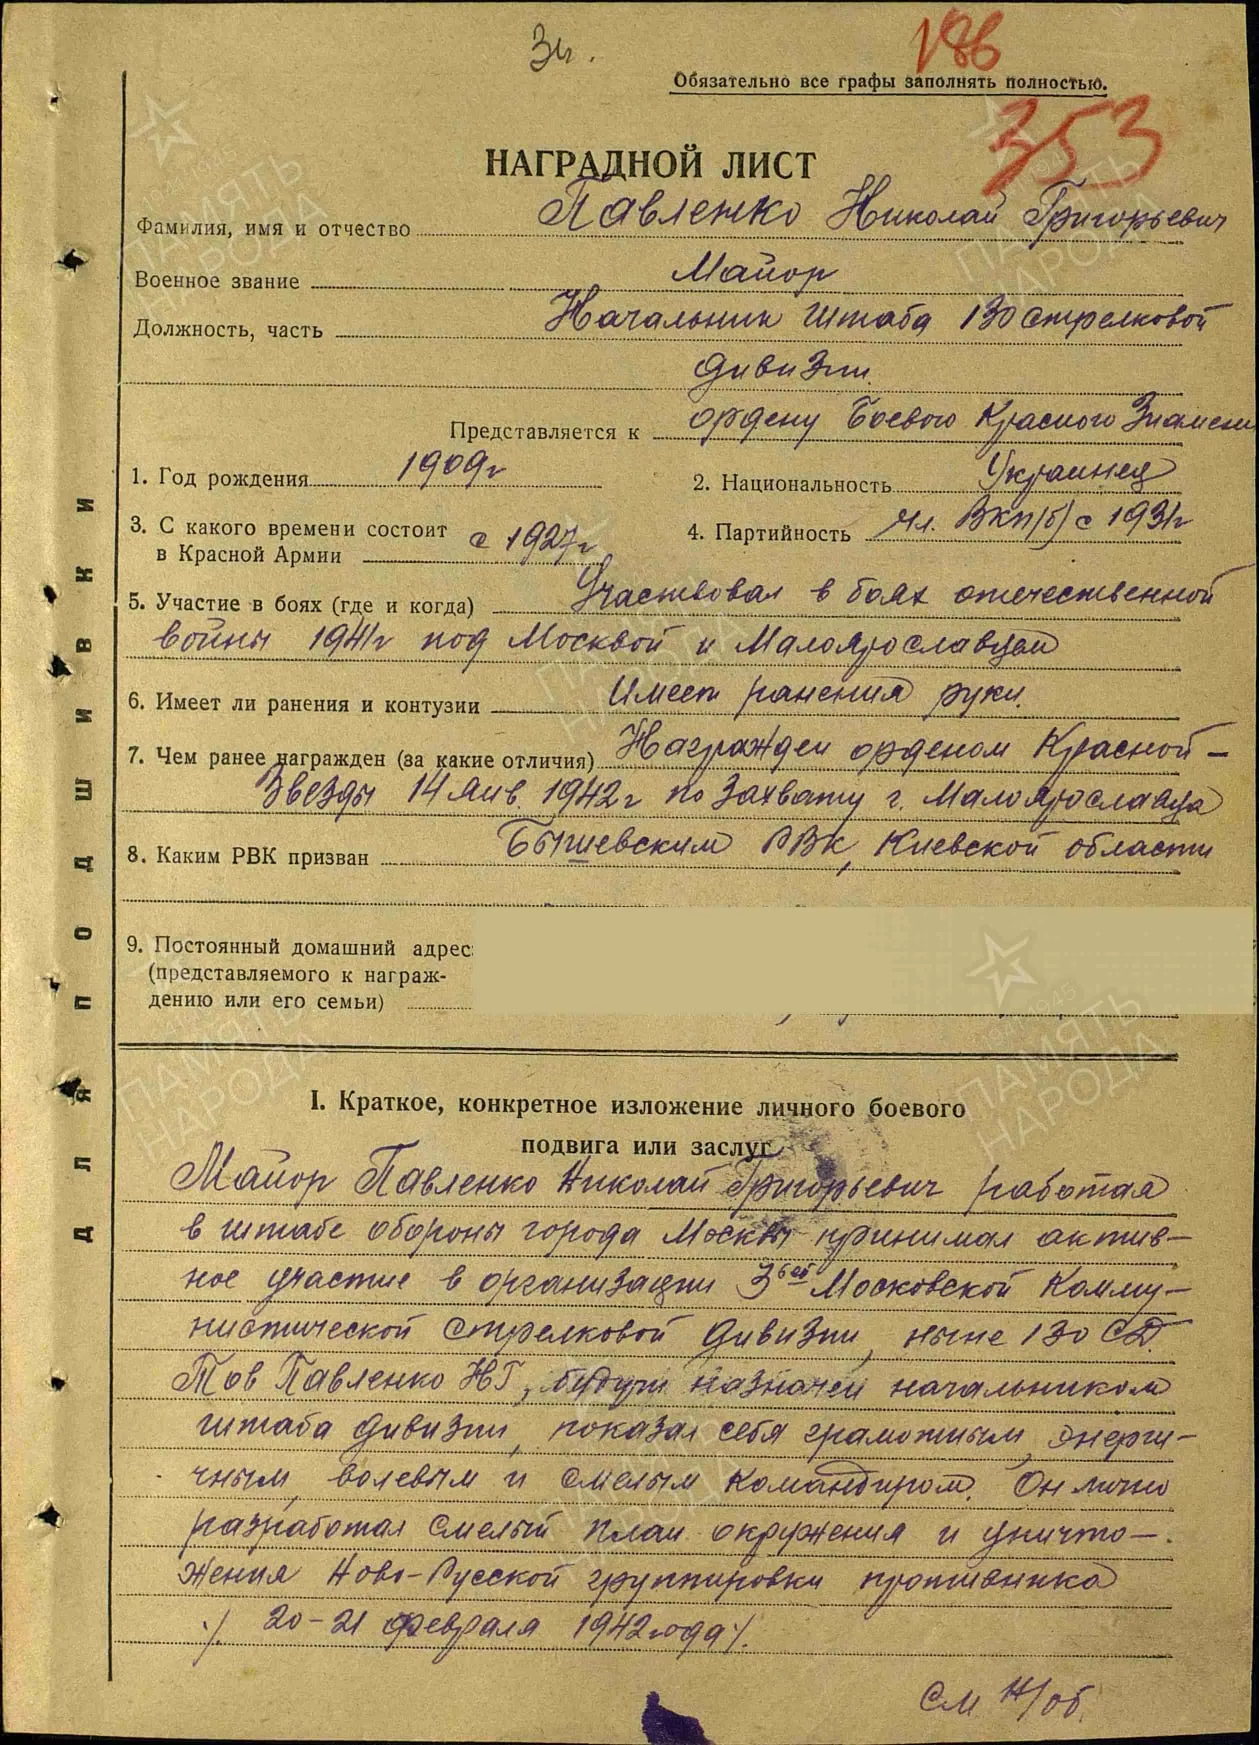 Зн.
186
Обязательно все графы заполнять полностью.
353
НАГРАДНОЙ ЛИСТ
Фамилия, имя и отчество Павленко Николай Григорьевич
Военное звание Майор
Должность, часть Начальник штаба 130 стрелковой
дивизии.
Представляется к ордену Боевого Красного Знамени
1. Год рождения 1909г
2. Национальность Украинец
3. С какого времени состоит в Красной Армии с 1927г
4. Партийность Чл. ВКП/б/ с 1931г
5. Участие в боях (где и когда) Участвовал в боях отечественной
войны 1941г под Москвой и Малоярославцем
6. Имеет ли ранения и контузии Имеет ранения руки.
7. Чем ранее награжден (за какие отличия) Награжден орденом Красной-
Звезды 14 янв. 1942г по захвату г. Малоярославца
8. Каким РВК призван Бышевским РВК, Киевской области
9. Постоянный домашний адрес:
(представляемого к награж-
дению или его семьи)
I. Краткое, конкретное изложение личного боевого
подвига или заслуг
Майор Павленко Николай Григорьевич работая
в штабе обороны города Москвы принимал актив-
ное участие в организации 3ей Московской Комму-
нистической стрелковой дивизии, ныне 130 СД.
Тов Павленко НГ, будучи назначен начальником
штаба дивизии, показал себя грамотным, энерги-
чным, волевым и смелым командиром. Он лично
разработал смелый план окружения и уничто-
жения Ново-Русской группировки противника
/. 20-21 февраля 1942 года/.
см н/об.
ДЛЯ ПОДШИВКИ
ПАМЯТЬ НАРОДА